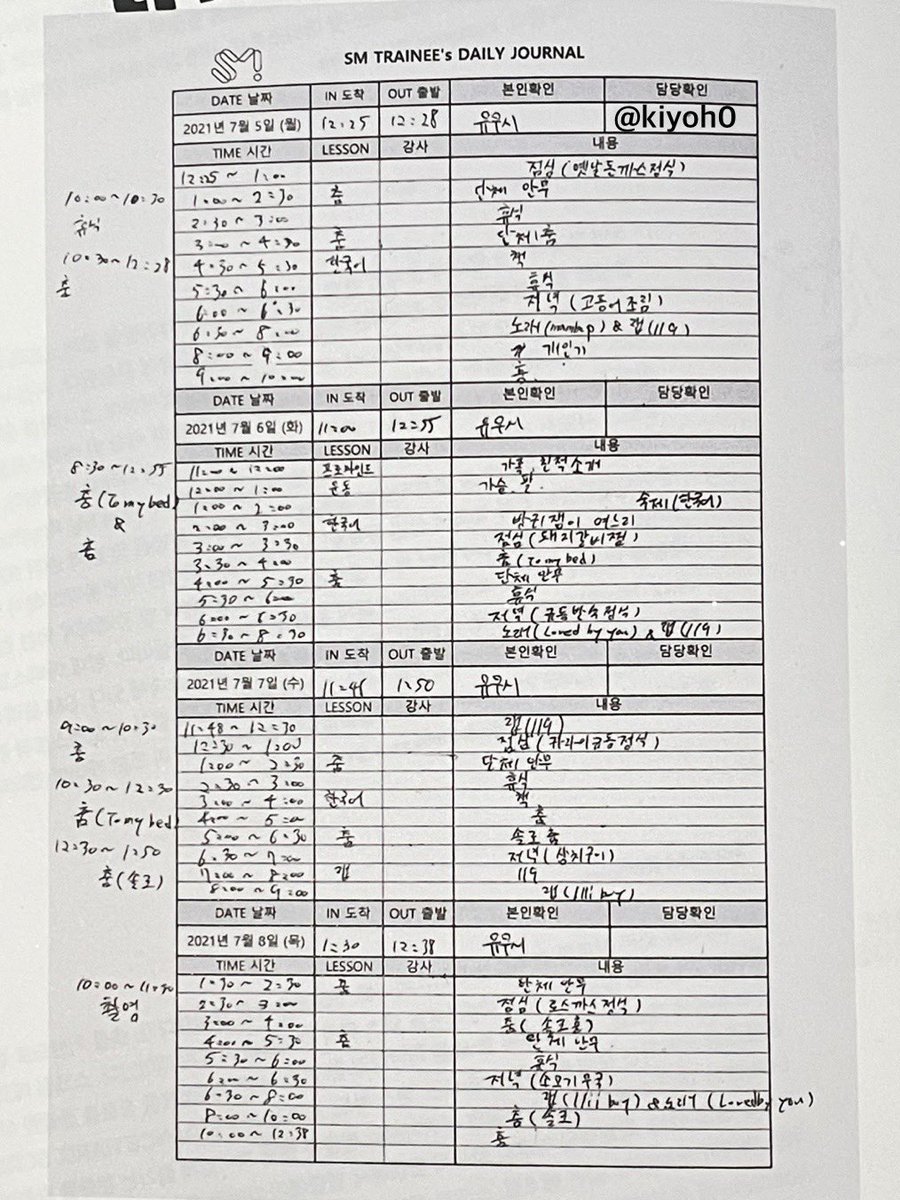 SM!
SM TRAINEE's DAILY JOURNAL
DATE 날짜 IN 도착 OUT 출발 본인확인 담당확인
2021년 7월 5일 (월) 12:25 12:28 유우시 @kiyoh0
TIME 시간 LESSON 강사 내용
12:25 ~ 1:00 점심 (옛날돈까스정식)
1:00 ~ 2:30 춤 단체 안무
2:30 ~ 3:00 휴식
3:00 ~ 4:30 춤 단체춤
4:30 ~ 5:30 한국어 책
5:30 ~ 6:00 휴식
6:00 ~ 6:30 저녁 (고등어조림)
6:30 ~ 8:00 노래 & 랩 (119)
8:00 ~ 9:00 개인기
9:00 ~ 10:00 춤
10:00 ~ 10:30
휴식
10:30 ~ 12:28
춤
DATE 날짜 IN 도착 OUT 출발 본인확인 담당확인
2021년 7월 6일 (화) 11:00 12:55 유우시
TIME 시간 LESSON 강사 내용
11:00 ~ 12:00 가족, 친척소개
12:00 ~ 1:00 운동 가슴, 팔
1:00 ~ 2:00 숙제 (한국어)
2:00 ~ 3:00 한국어 방귀쟁이 며느리
3:00 ~ 3:30 점심 (돼지갈비찜)
3:30 ~ 4:00 춤 (To my bed)
4:00 ~ 5:30 춤 단체 안무
5:30 ~ 6:00 휴식
6:00 ~ 6:30 저녁
6:30 ~ 8:30 노래 (Loved by you) & 랩 (119)
8:30 ~ 12:55
춤 (To my bed)
&
춤
DATE 날짜 IN 도착 OUT 출발 본인확인 담당확인
2021년 7월 7일 (수) 1:50 유우시
TIME 시간 LESSON 강사 내용
11:48 ~ 12:30 랩 (119)
12:30 ~ 1:00 점심
1:00 ~ 2:30 춤 단체 안무
2:30 ~ 3:00 휴식
3:00 ~ 4:00 한국어 책
4:00 ~ 5:00 춤
5:00 ~ 6:30 춤 솔로 춤
6:30 ~ 7:00 저녁 (삼치구이)
7:00 ~ 8:00 랩 119
8:00 ~ 9:00 랩
9:00 ~ 10:30
춤
10:30 ~ 12:30
춤 (To my bed)
12:30 ~ 1:50
춤 (솔로)
DATE 날짜 IN 도착 OUT 출발 본인확인 담당확인
2021년 7월 8일 (목) 1:30 12:38 유우시
TIME 시간 LESSON 강사 내용
1:30 ~ 2:30 춤 단체 안무
2:30 ~ 3:00 점심 (로스까스정식)
3:00 ~ 4:00 춤
4:00 ~ 5:30 춤 단체 안무
5:30 ~ 6:00 휴식
6:00 ~ 6:30 저녁
6:30 ~ 8:00 랩 & 노래 (Loved by you)
8:00 ~ 10:00 춤 (솔로)
10:00 ~ 12:38 춤
10:00 ~ 11:30
촬영